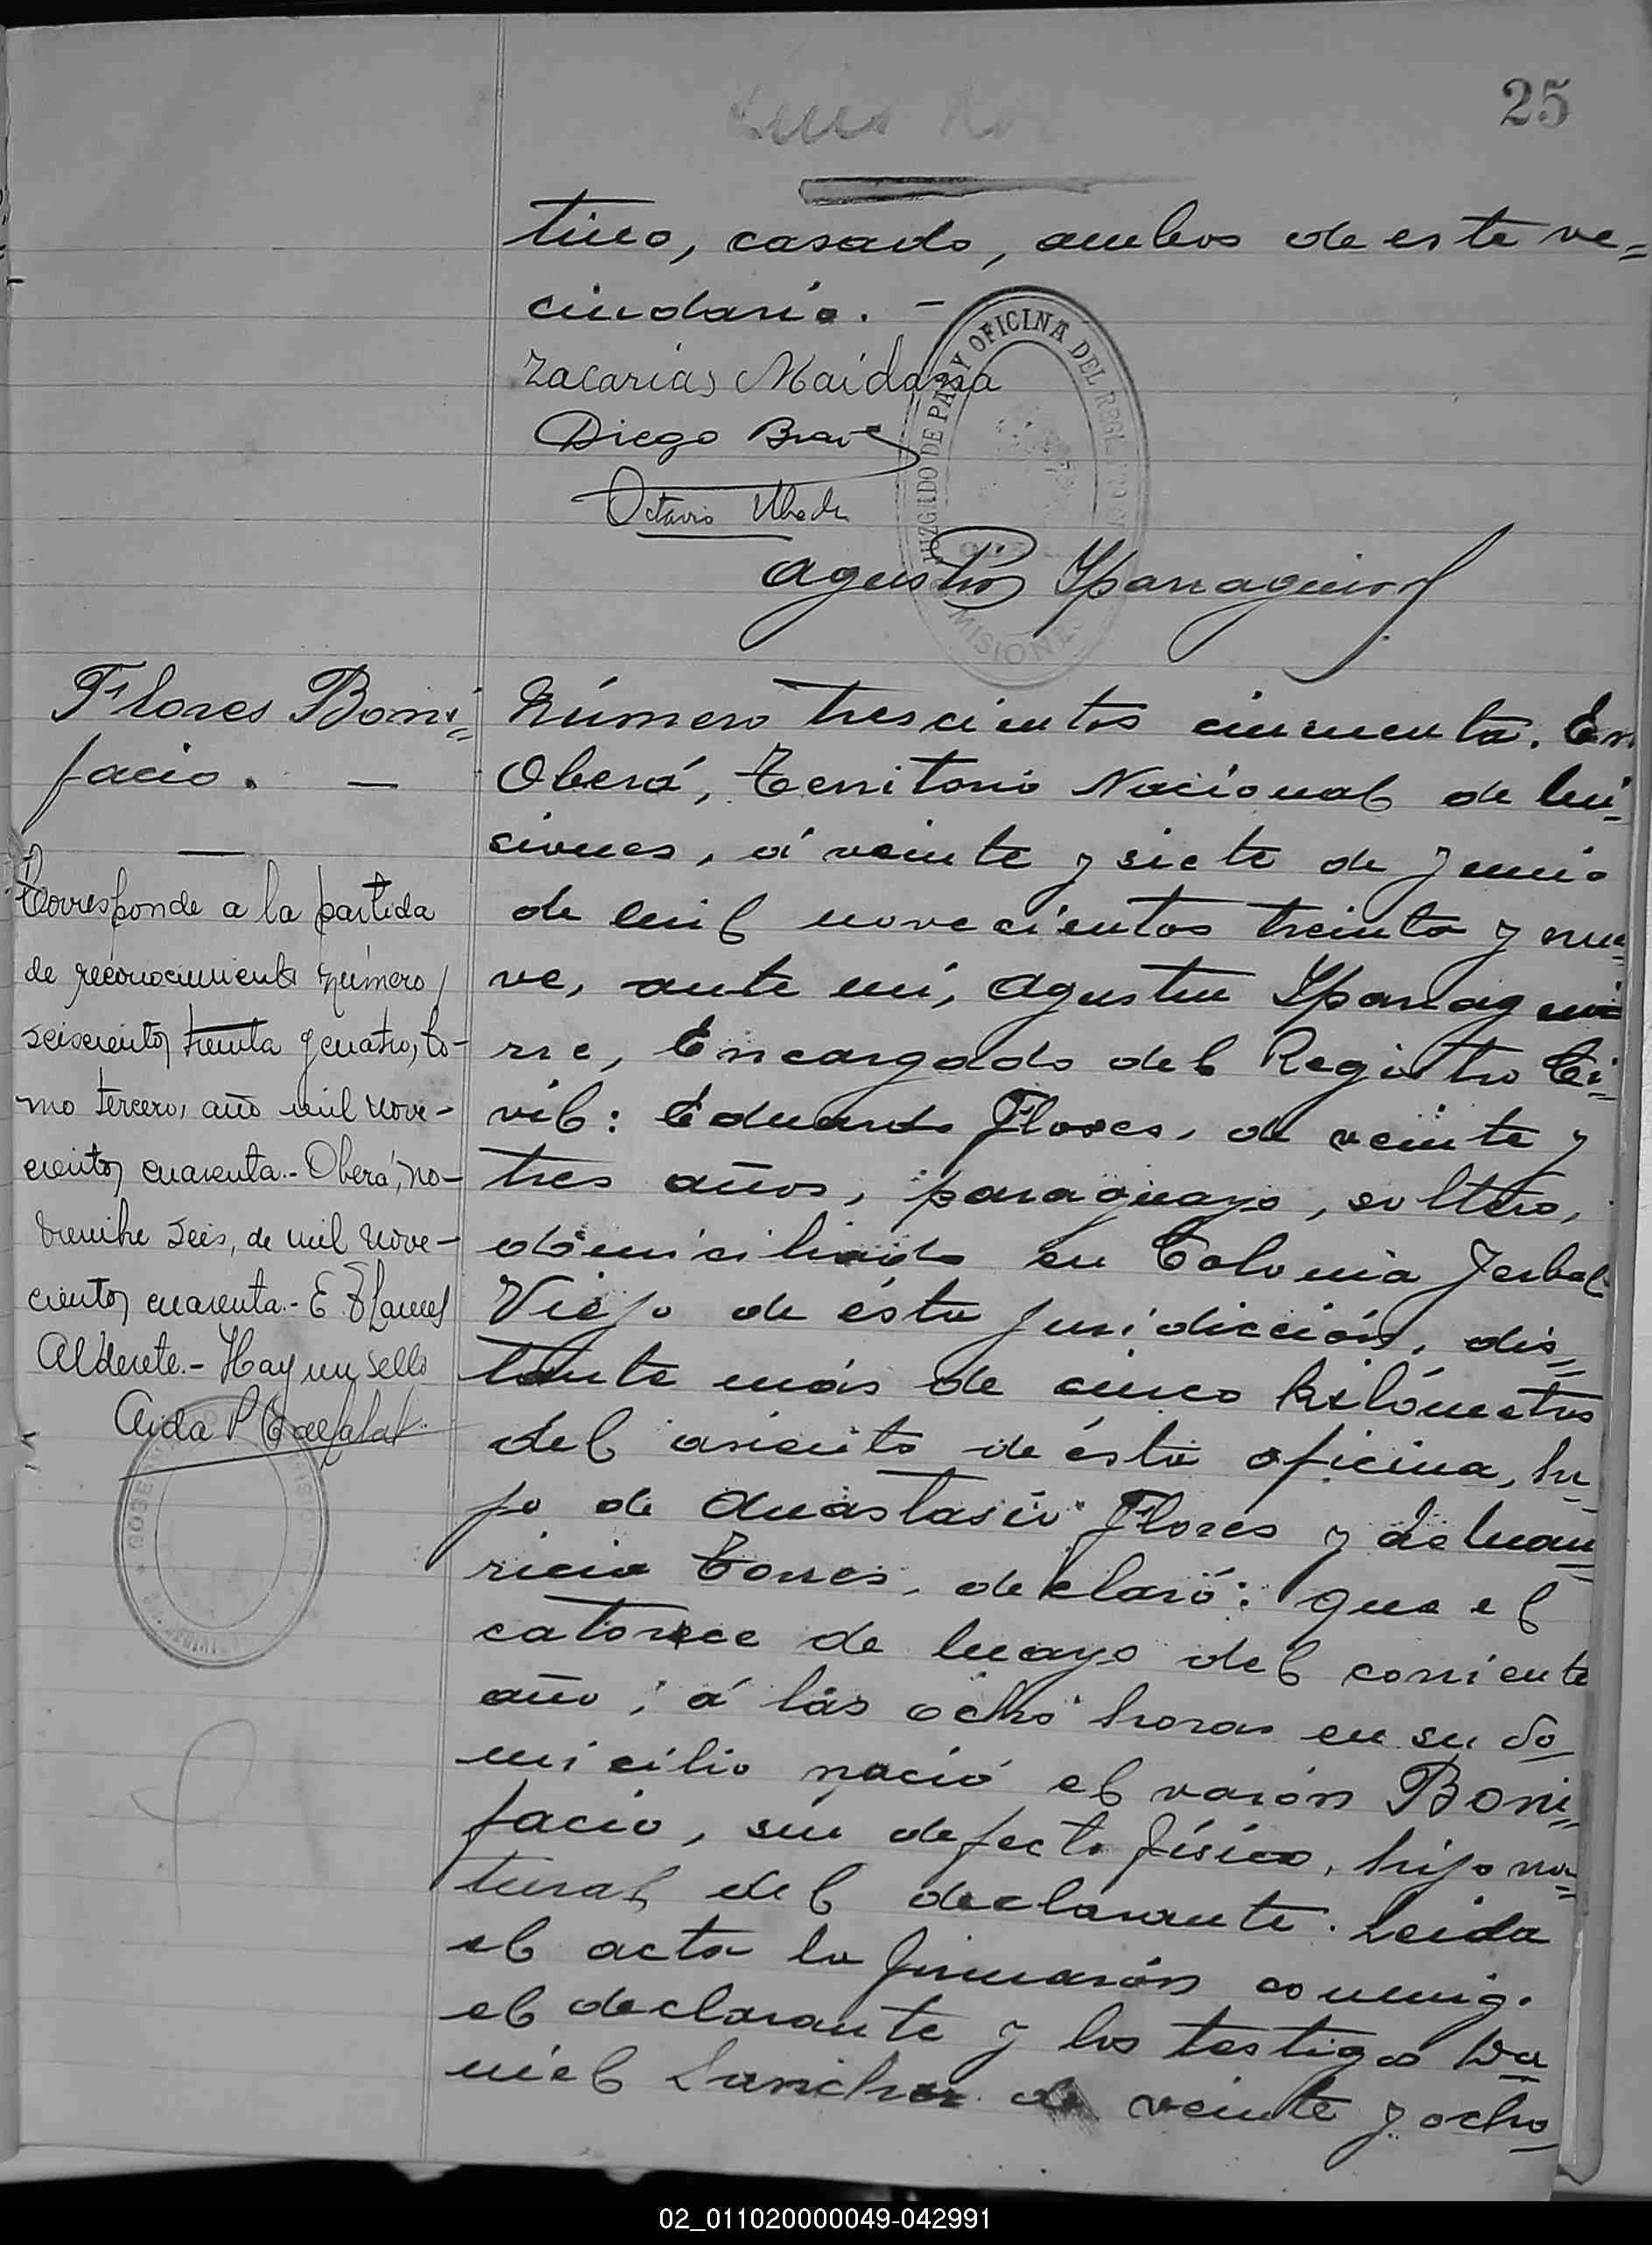 25
tino, casado, ambos de este ve=
cindario. -
Zacarias Maidana
Diego Brave
Octavio
Agustin Yparraguirre
JUZGADO DE PAZ Y OFICINA DEL REGISTRO
MISIONES
Flores Boni=
facio. —
—
Corresponde a la partida
de reconocimiento número
seiscientos treinta y cuatro, to-
mo tercero, año mil nove-
cientos cuarenta.- Oberá, no-
viembre seis, de mil nove-
cientos cuarenta.- E.
Alderete.- Hay un sello
Aida P
Número trescientos cincuenta. En
Oberá, Territorio Nacional de Mi=
siones, á veinte y siete de Junio
de mil novecientos treinta y nue=
ve, ante mí, Agustin Yparragui=
rre, Encargado del Registro Ci=
vil: Eduardo Flores, de veinte y
tres años, paraguayo, soltero,
domiciliado en Colonia Yerbal
Viejo de ésta jurisdicción, dis=
tante más de cinco kilómetros
del asiento de ésta oficina, hi=
jo de Anastasio Flores y de Mau=
ricia Torres, declaró: Que el
catorce de Mayo del corriente
año; á las ocho horas en su do=
micilio nació el varón Boni=
facio, sin defecto físico, hijo na=
tural del declarante. Leida
el acta la firmarón conmigo
el declarante y los testigos Da=
niel Sanchez de veinte y ocho
02_011020000049-042991